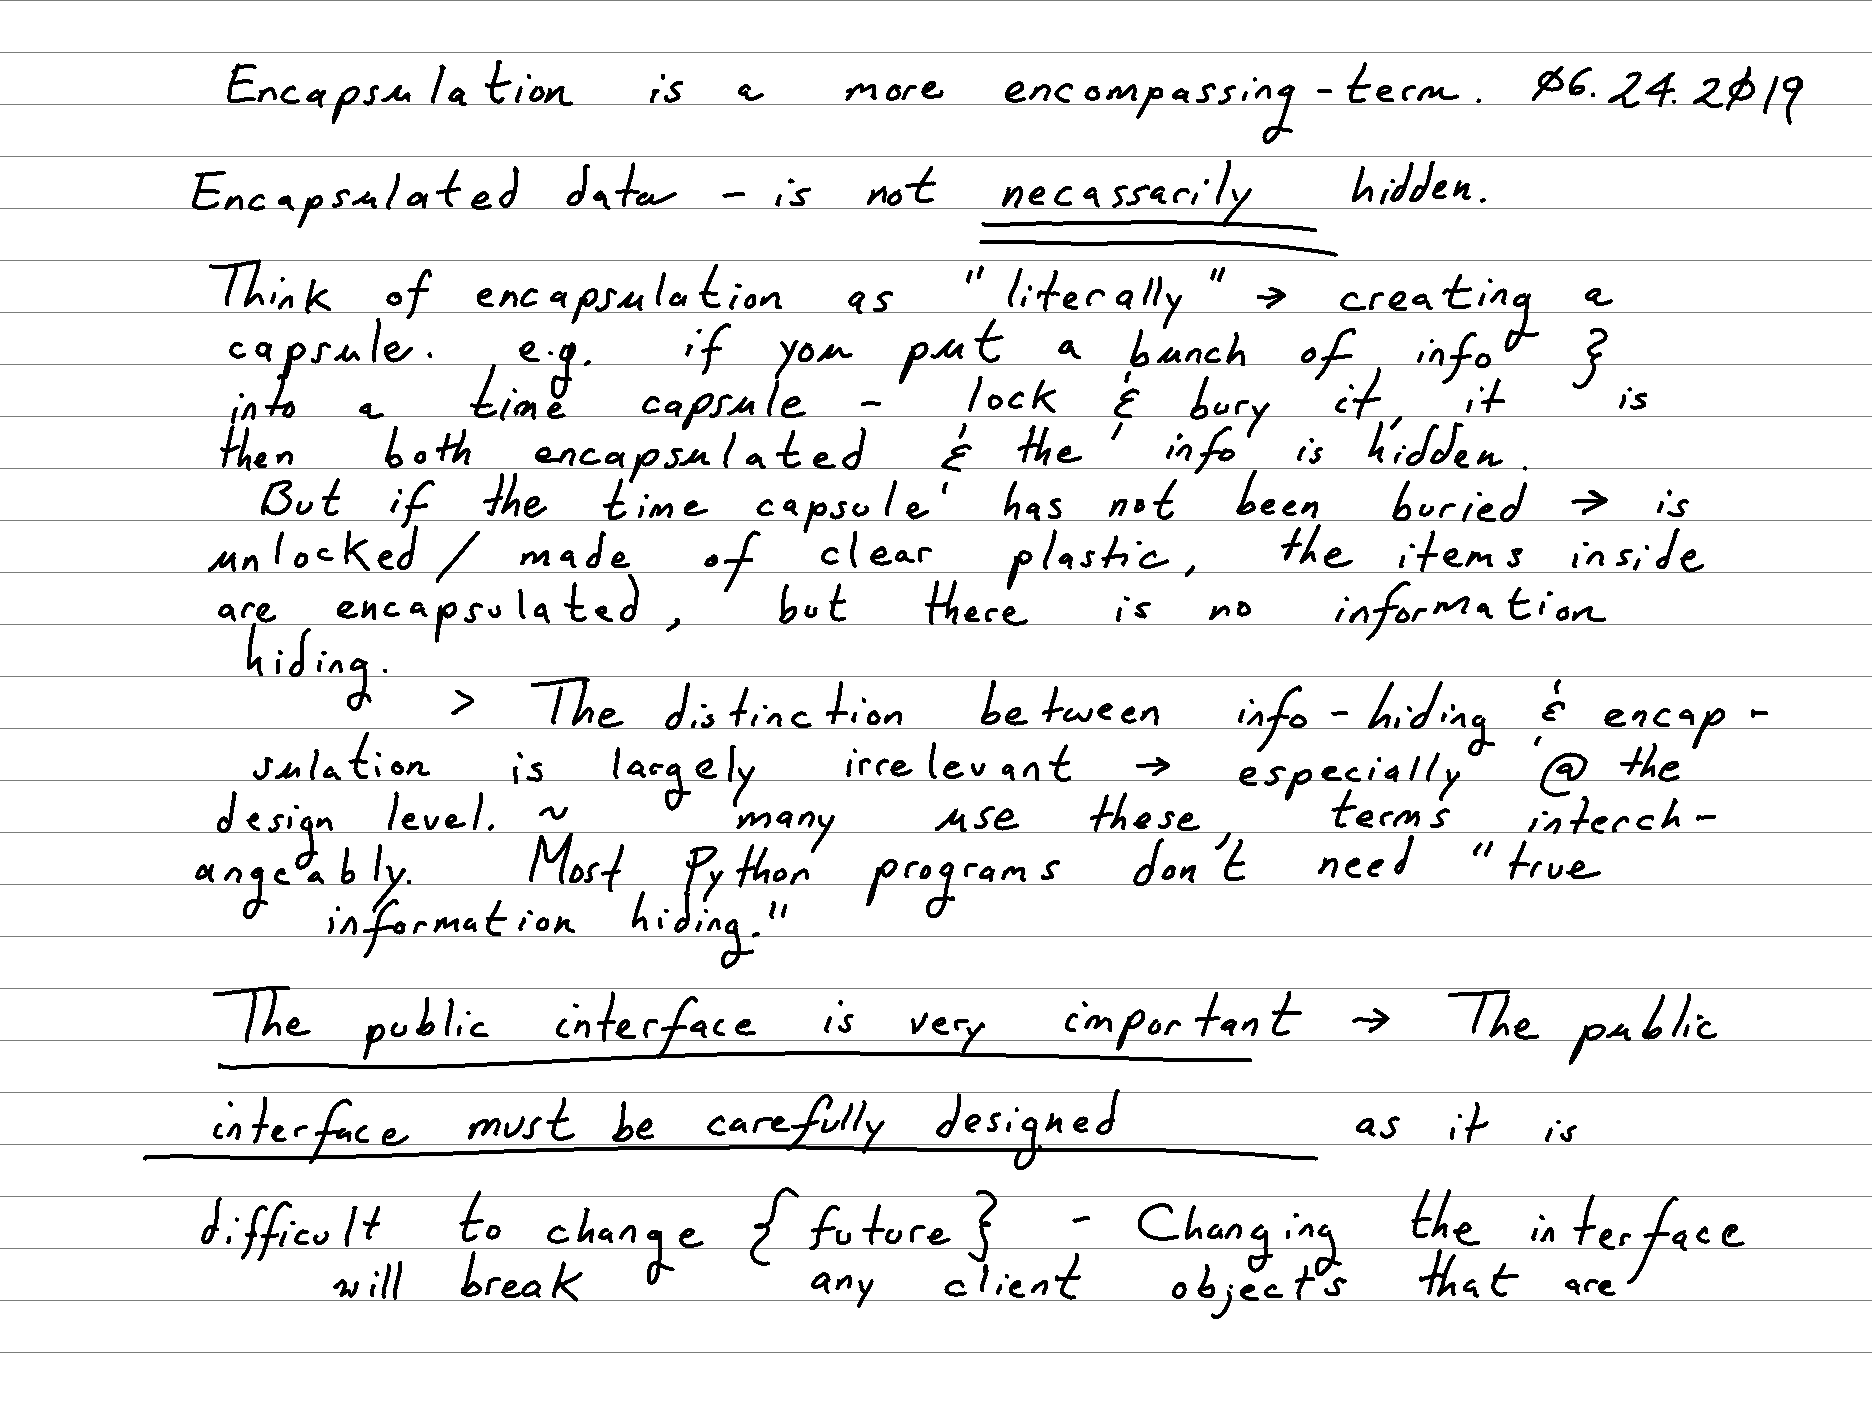 Encapsulation is a more encompassing-term. 06.24.2019
Encapsulated data - is not necassarily hidden.
Think of encapsulation as "literally" → creating a
capsule. e.g. if you put a bunch of info }
into a time capsule - lock & bury it, it is
then both encapsulated & the info is hidden.
But if the time capsule has not been buried → is
unlocked / made of clear plastic, the items inside
are encapsulated, but there is no information
hiding.
> The distinction between info-hiding & encap-
sulation is largely irrelevant → especially @ the
design level. ~ many use these terms interch-
angeably. Most Python programs don't need "true
information hiding."
The public interface is very important → The public
interface must be carefully designed as it is
difficult to change {future} - Changing the interface
will break any client objects that are